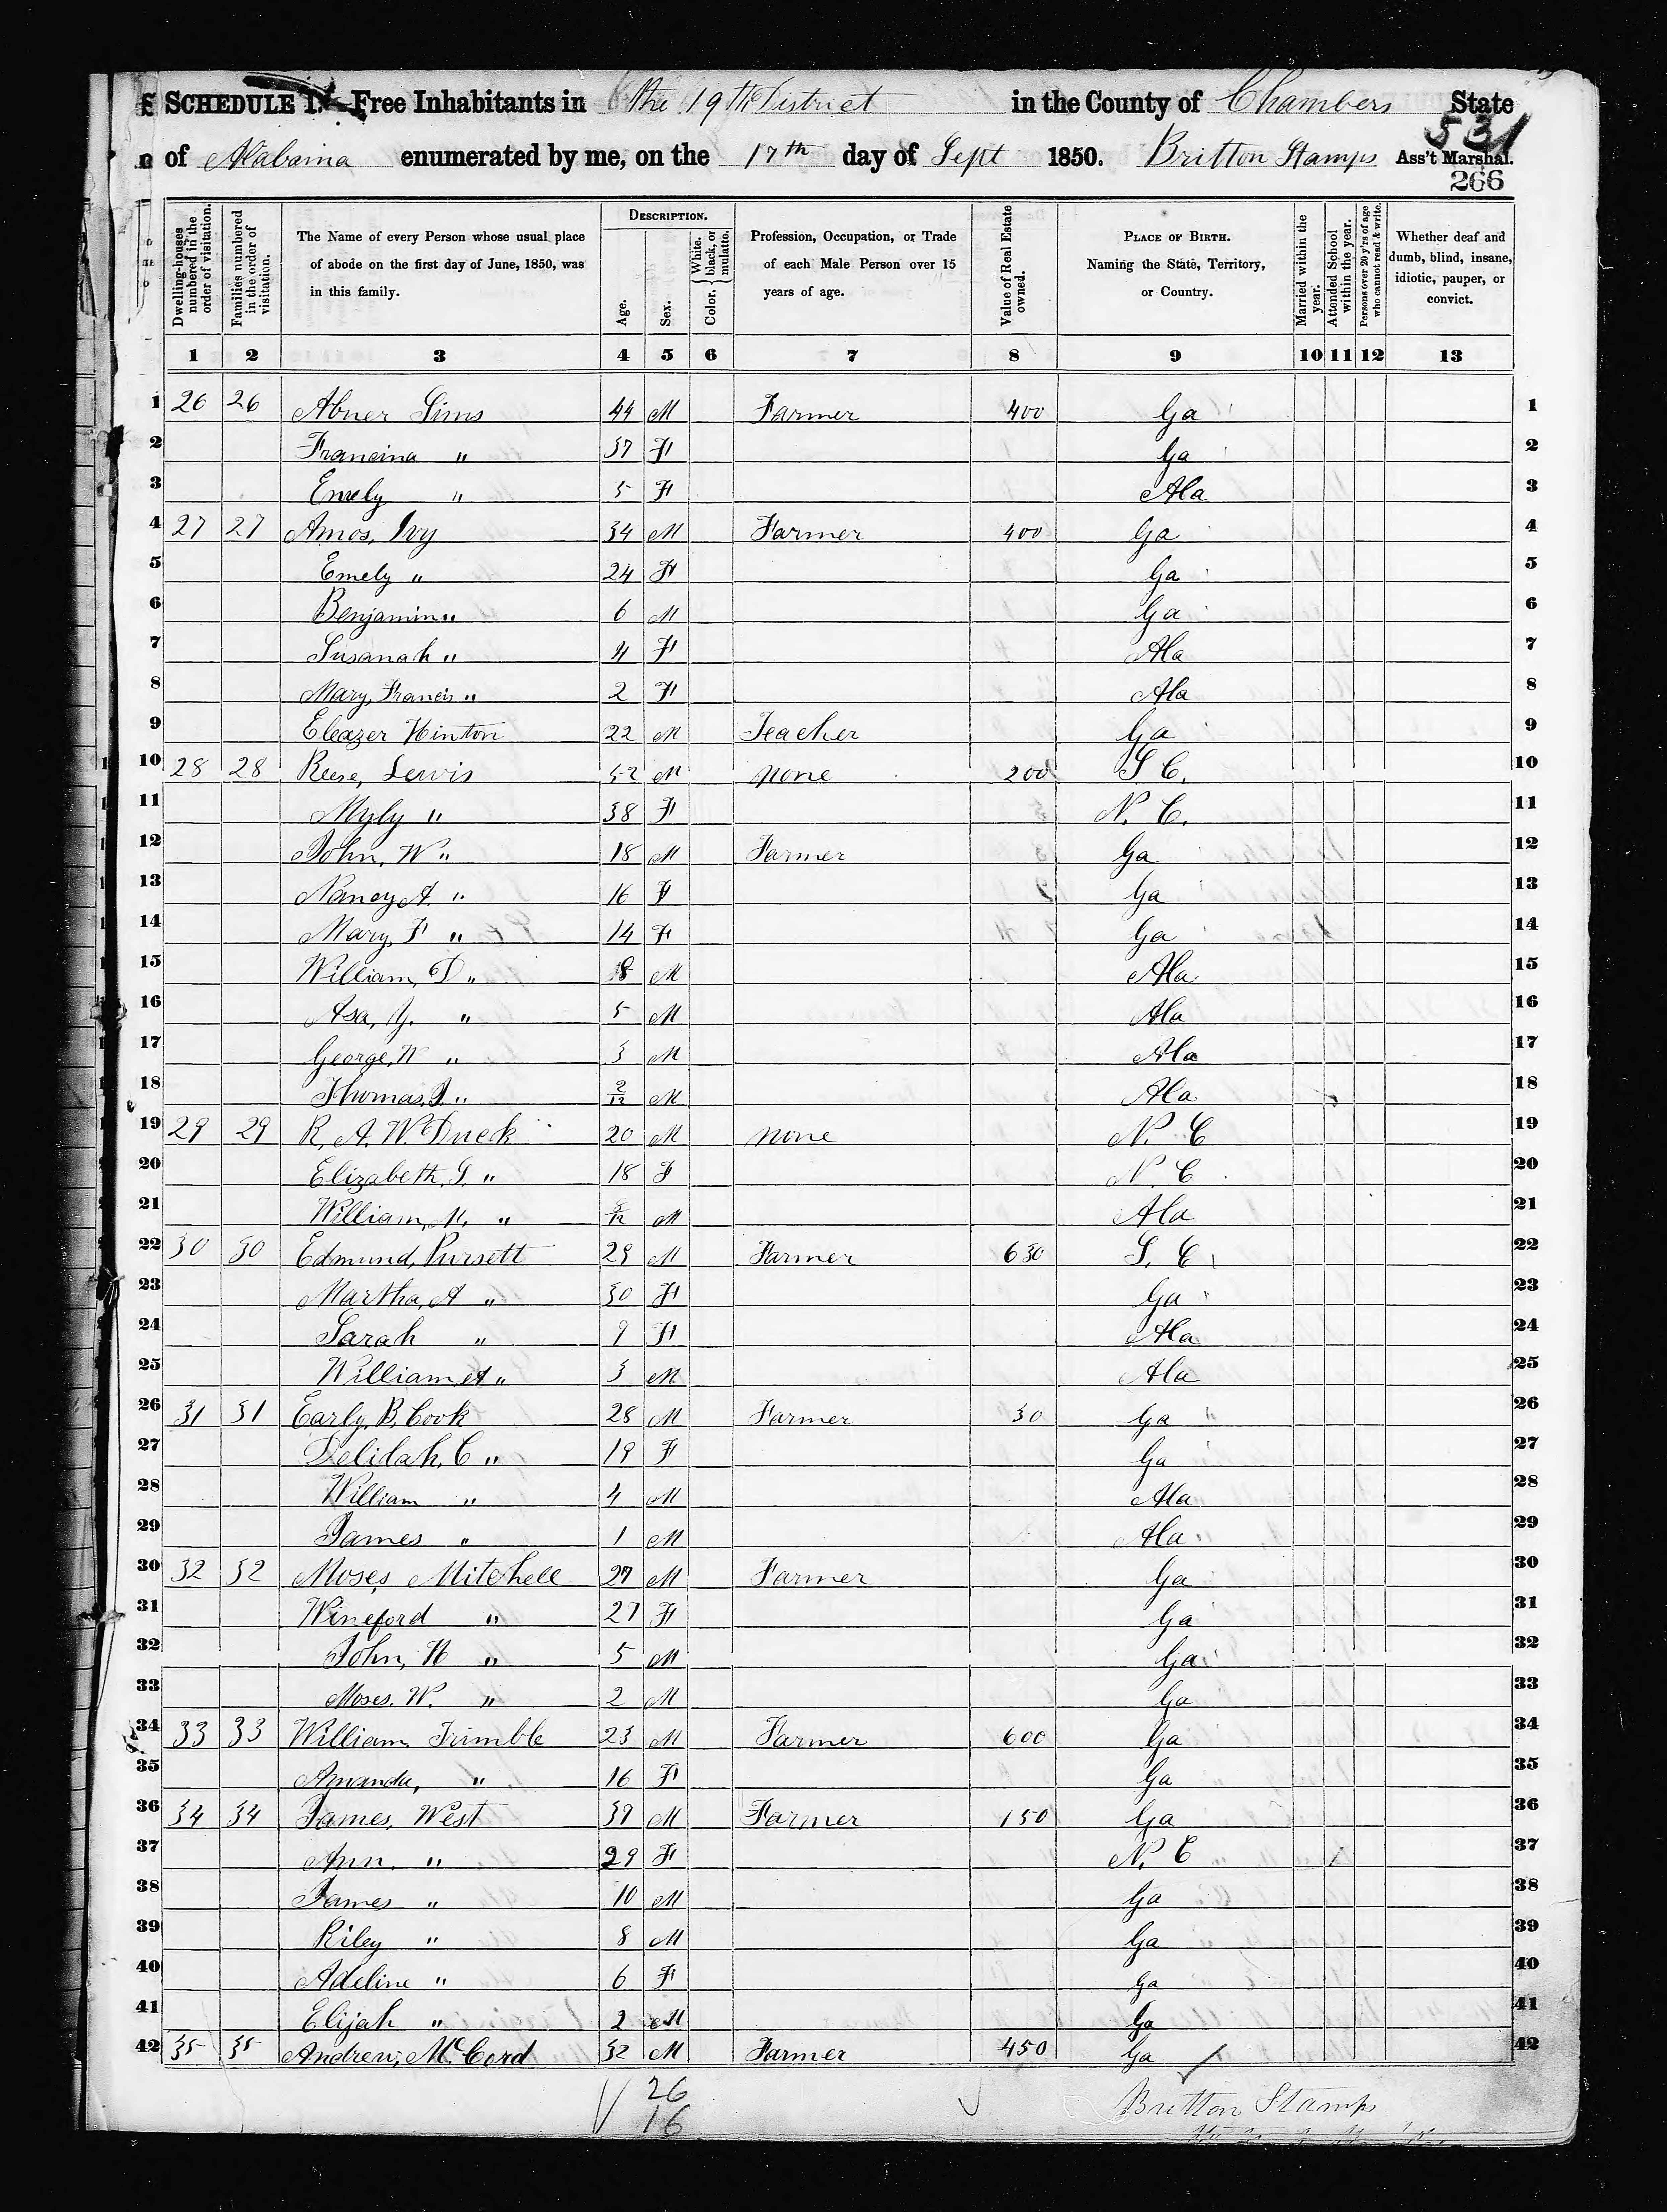 SCHEDULE I. Free Inhabitants in the 19th District in the County of Chambers State
of Alabama enumerated by me, on the 17th day of Sept 1850. Britton Stamps Ass't Marshal.
531
266
Dwelling-houses numbered in the order of visitation.
Families numbered in the order of visitation.
The Name of every Person whose usual place of abode on the first day of June, 1850, was in this family.
DESCRIPTION.
Age.
Sex.
Color. { White, black, or mulatto.
Profession, Occupation, or Trade of each Male Person over 15 years of age.
Value of Real Estate owned.
PLACE OF BIRTH. Naming the State, Territory, or Country.
Married within the year.
Attended School within the year.
Persons over 20 y'rs of age who cannot read & write.
Whether deaf and dumb, blind, insane, idiotic, pauper, or convict.
1 2 3 4 5 6 7 8 9 10 11 12 13
1 26 26 Abner Sims 44 M Farmer 400 Ga 1
2 Francina " 37 F Ga 2
3 Emely " 5 F Ala 3
4 27 27 Amos, Ivy 34 M Farmer 400 Ga 4
5 Emely " 24 F Ga 5
6 Benjamin " 6 M Ga 6
7 Susanah " 4 F Ala 7
8 Mary, Francis " 2 F Ala 8
9 Eleazer Hinton 22 M Teacher Ga 9
10 28 28 Reese, Lewis 52 M none 200 S C. 10
11 Myly " 38 F N. C. 11
12 John, W " 18 M Farmer Ga 12
13 Nancy A. " 16 F Ga 13
14 Mary, F " 14 F Ga 14
15 William, D " 8 M Ala 15
16 Asa, Y. " 5 M Ala 16
17 George, W " 3 M Ala 17
18 Thomas, J. " 2/12 M Ala 18
19 29 29 R. A. W. Dueck 20 M none N. C 19
20 Elizabeth, S. " 18 F N. C 20
21 William, M. " M Ala 21
22 30 30 Edmund, Pursett 29 M Farmer 630 S. C 22
23 Martha, A " 30 F Ga 23
24 Sarah " 9 F Ala 24
25 William, A " 3 M Ala 25
26 31 31 Early, B. Cook 28 M Farmer 30 Ga 26
27 Delilah, C " 19 F Ga 27
28 William " 4 M Ala 28
29 James " 1 M Ala 29
30 32 32 Moses Mitchell 27 M Farmer Ga 30
31 Wineford " 27 F Ga 31
32 John, H " 5 M Ga 32
33 Moses. W. " 2 M Ga 33
34 33 33 William Trimble 23 M Farmer 600 Ga 34
35 Amanda, " 16 F Ga 35
36 34 34 James, West 39 M Farmer 150 Ga 36
37 Ann. " 29 F N. C 37
38 James " 10 M Ga 38
39 Riley " 8 M Ga 39
40 Adeline " 6 F Ga 40
41 Elijah " 2 M Ga 41
42 35 35 Andrew, McCord 32 M Farmer 450 Ga 42
26
16
Britton Stamps